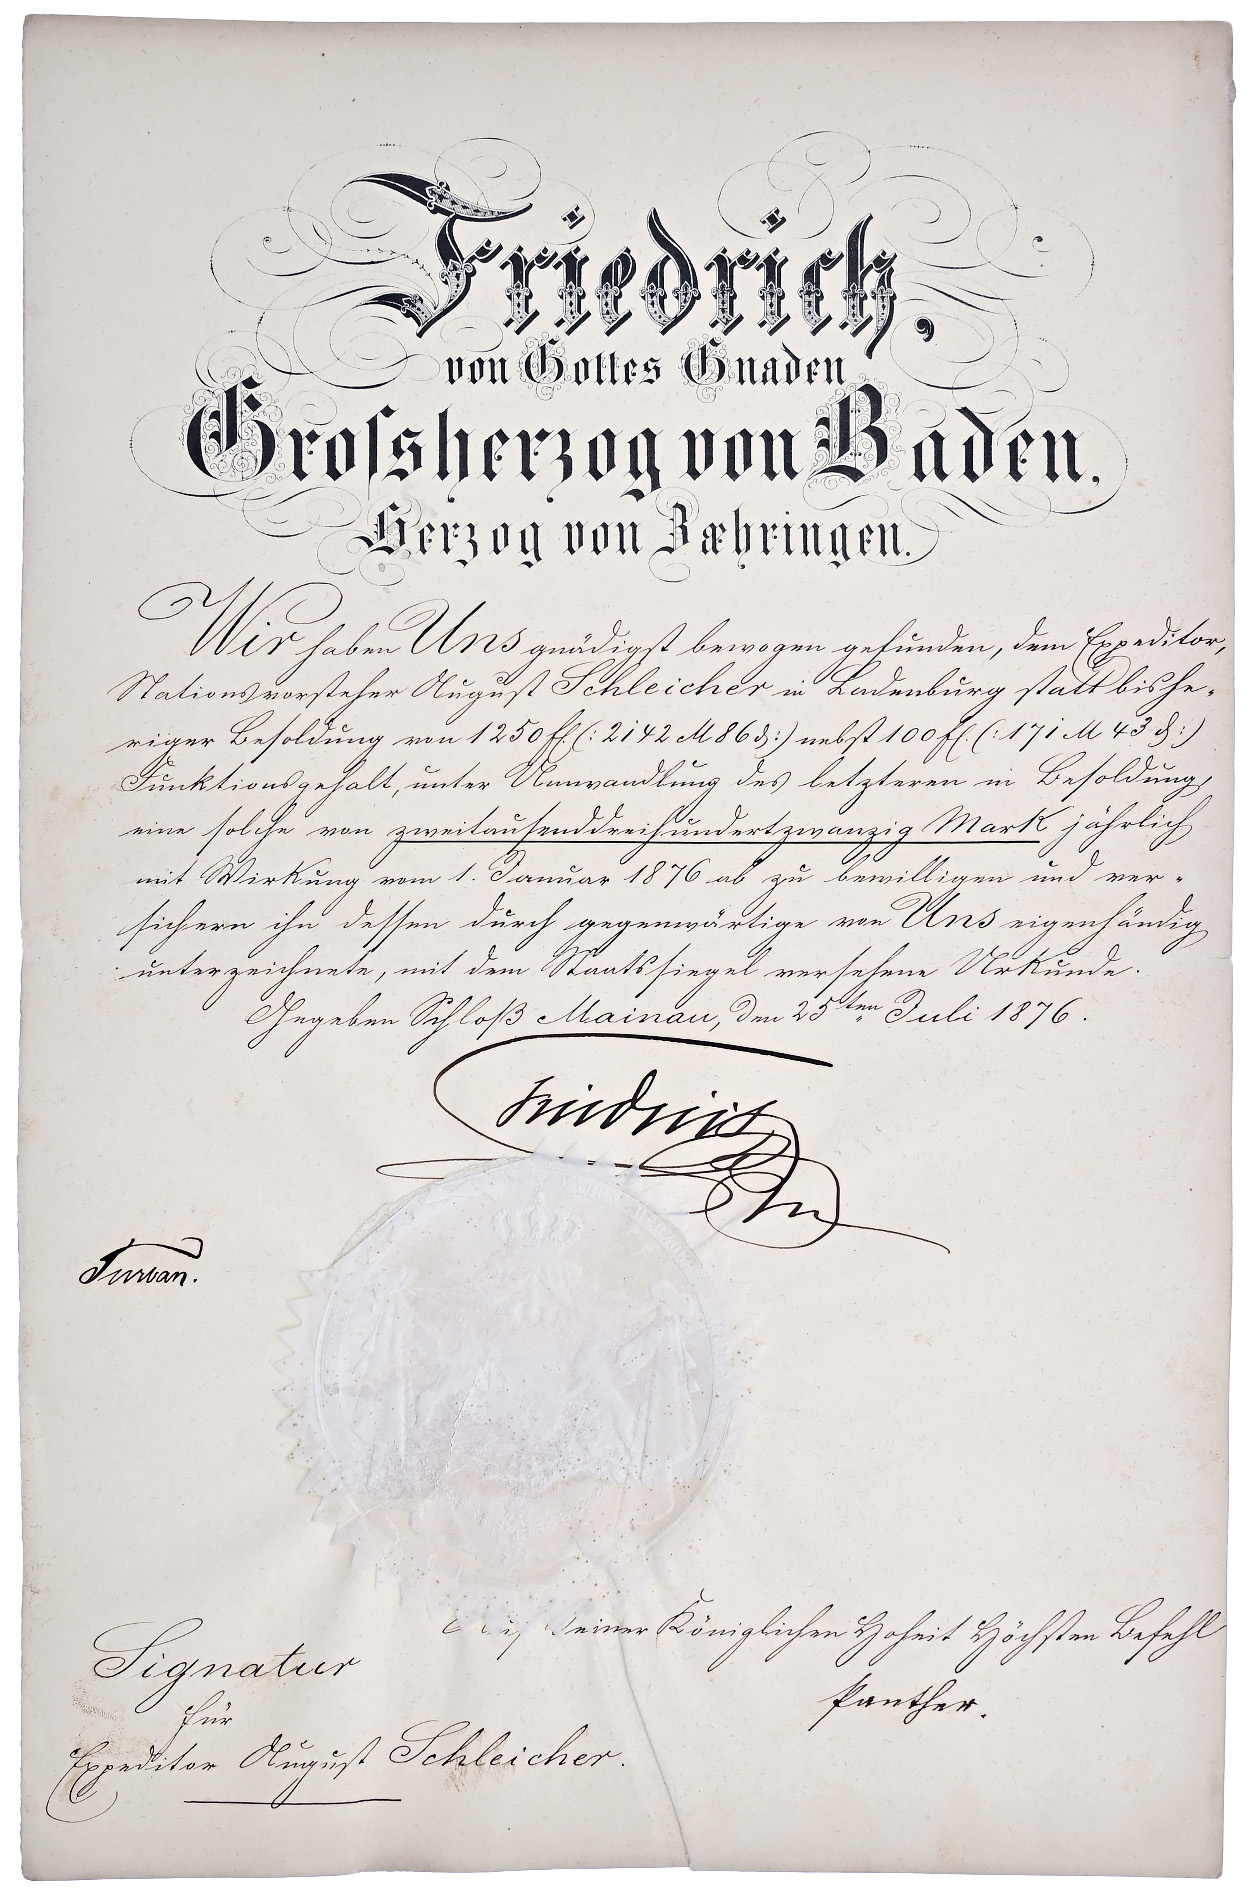 Friedrich,
von Gottes Gnaden
Groſsherzog von Baden,
Herzog von Zæhringen.
Wir haben Uns gnädigst bewogen gefunden, dem Expeditor,
Stationsvorsteher August Schleicher in Ladenburg statt bishe-
riger Besoldung von 1250 fl. (: 2142 M 86 ₰ :) nebst 100 fl. (: 171 M 43 ₰ :)
Funktionsgehalt, unter Umwandlung des letzteren in Besoldung,
eine solche von zweitausenddreihundertzwanzig Mark jährlich
mit Wirkung vom 1. Januar 1876 ab zu bewilligen und ver-
sichern ihn dessen durch gegenwärtige von Uns eigenhändig
unterzeichnete, mit dem Staatssiegel versehene Urkunde.
Gegeben Schloß Mainau, den 25ten Juli 1876.
Friedrich
Turban.
Auf Seiner Königlichen Hoheit Höchsten Befehl
Panther.
Signatur
für
Expeditor August Schleicher.